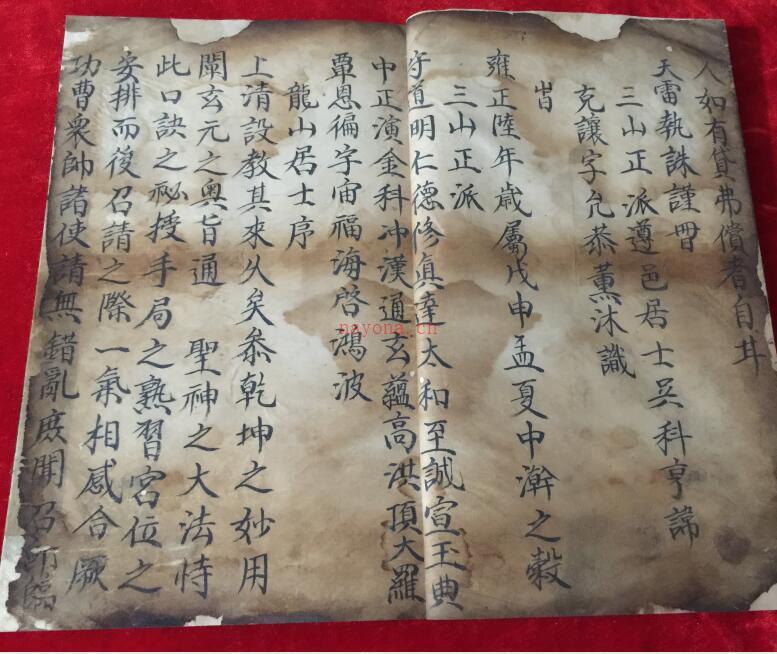 人如有貸弗償者自甘
天雷執誅謹冊
三山正派遵邑居士吳科亨諦
克讓字允恭薰沐識
旹
雍正陸年歲屬戊申孟夏中澣之穀
三山正派
守道明仁德修真達太和至誠宣玉典
中正演金科冲漢通玄蘊高洪頂大羅
覃恩徧宇宙福海啓鴻波
龍山居士序
上清設教其來久矣叅乾坤之妙用
闡玄元之奧旨通 聖神之大法恃
此口訣之祕授手局之熟習宮位之
安排而後召請之際一氣相感合厥
功曹衆帥諸使請無錯亂庻開召
nayona.cn